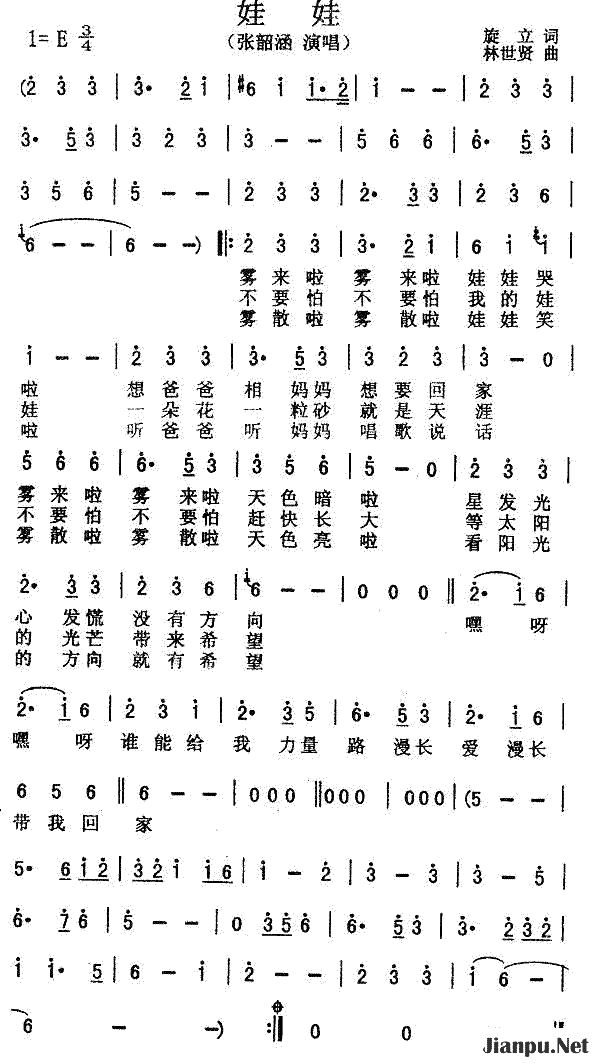 娃 娃
1= E 3/4
（张韶涵 演唱）
旋 立 词
林世贤 曲
(2 3 3 | 3· 2 1 | #6 1 1·2 | 1 - - | 2 3 3 |
3· 5 3 | 3 2 3 | 3 - - | 5 6 6 | 6· 5 3 |
3 5 6 | 5 - - | 2 3 3 | 2· 3 3 | 2 3 6 |
6 - - | 6 - -) ‖: 2 3 3 | 3· 2 1 | 6 1 1
雾 来 啦 雾 来 啦 娃 娃 哭
不 要 怕 不 要 怕 我 的 娃
雾 散 啦 雾 散 啦 娃 娃 笑
1 - - | 2 3 3 | 3· 5 3 | 3 2 3 | 3 - 0 |
啦 想 爸 爸 相 妈 妈 想 要 回 家
娃 一 朵 花 一 粒 砂 就 是 天 涯
啦 听 爸 爸 听 妈 妈 唱 歌 说 话
5 6 6 | 6· 5 3 | 3 5 6 | 5 - 0 | 2 3 3 |
雾 来 啦 雾 来 啦 天 色 暗 啦 星 发 光
不 要 怕 不 要 怕 赶 快 长 大 等 太 阳
雾 散 啦 雾 散 啦 天 色 亮 啦 看 阳 光
2· 3 3 | 2 3 6 | 6 - - | 0 0 0 ‖ 2· 1 6 |
心 发 慌 没 有 方 向 嘿 呀
的 光 芒 带 来 希 望
的 方 向 就 有 希 望
2· 1 6 | 2 3 1 | 2· 3 5 | 6· 5 3 | 2· 1 6 |
嘿 呀 谁 能 给 我 力 量 路 漫 长 爱 漫 长
6 5 6 ‖ 6 - - | 0 0 0 ‖ 0 0 0 | 0 0 0 | (5 - - |
带 我 回 家
5· 6 1 2 | 3 2 1 1 6 | 1 - 2 | 3 - 3 | 3 - 5 |
6· 7 6 | 5 - - | 0 3 5 6 | 6· 5 3 | 3· 2 3 2 |
1 1· 5 | 6 - 1 | 2 - - | 2 - 1 | 1 6 - |
6 - -) :‖ 0 0
Jianpu.Net